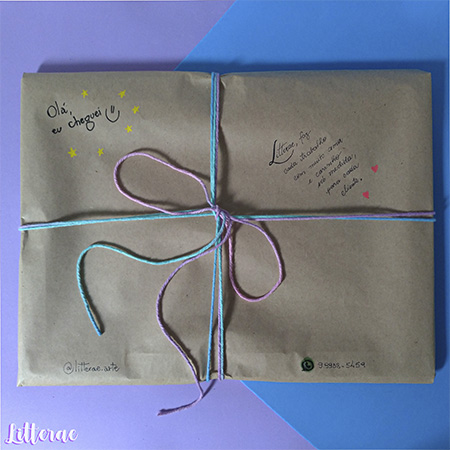 Olá,
eu cheguei
Litterae, fez
cada trabalho
com muito amor
e carinho
sob medida,
para você
cliente,
@litterae.arte
Litterae